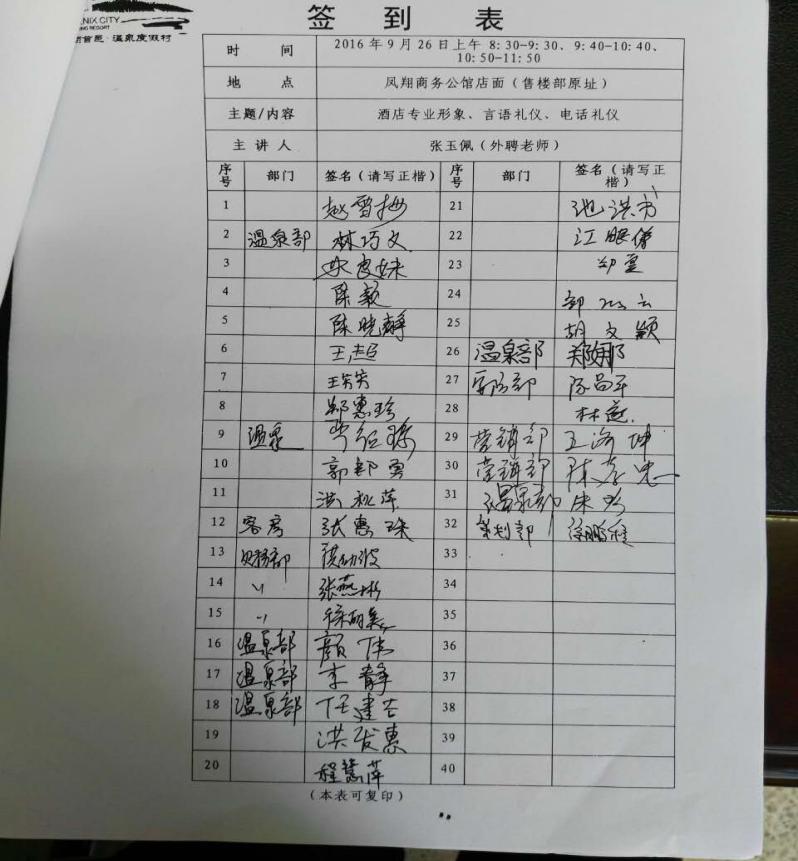 ENIX CITY
ING RESORT
温泉度假村
签到表
时间 2016年9月26日上午8:30-9:30、9:40-10:40、
10:50-11:50
地点 凤翔商务公馆店面(售楼部原址)
主题/内容 酒店专业形象、言语礼仪、电话礼仪
主讲人 张玉佩(外聘老师)
序号 部门 签名(请写正楷) 序号 部门 签名(请写正楷)
1 赵雪梅 21
2 温泉部 林巧文 22 江眼
3 23
4 陈毅 24
5 陈晓静 25 胡文颖
6 王超 26 温泉部 郑娜
7 王芳芳 27 陈昌平
8 郑惠珍 28 林莲
9 温泉 29 营销部 王海坤
10 郭郑勇 30 营销部
11 洪秋萍 31 温泉部 朱
12 客房 张惠珠 32 策划部 徐鹏程
13 财务部 33
14 〃 张燕彬 34
15 〃 徐丽美 35
16 温泉部 颜伟 36
17 温泉部 李静 37
18 温泉部 任建 38
19 洪发惠 39
20 程慧萍 40
(本表可复印)